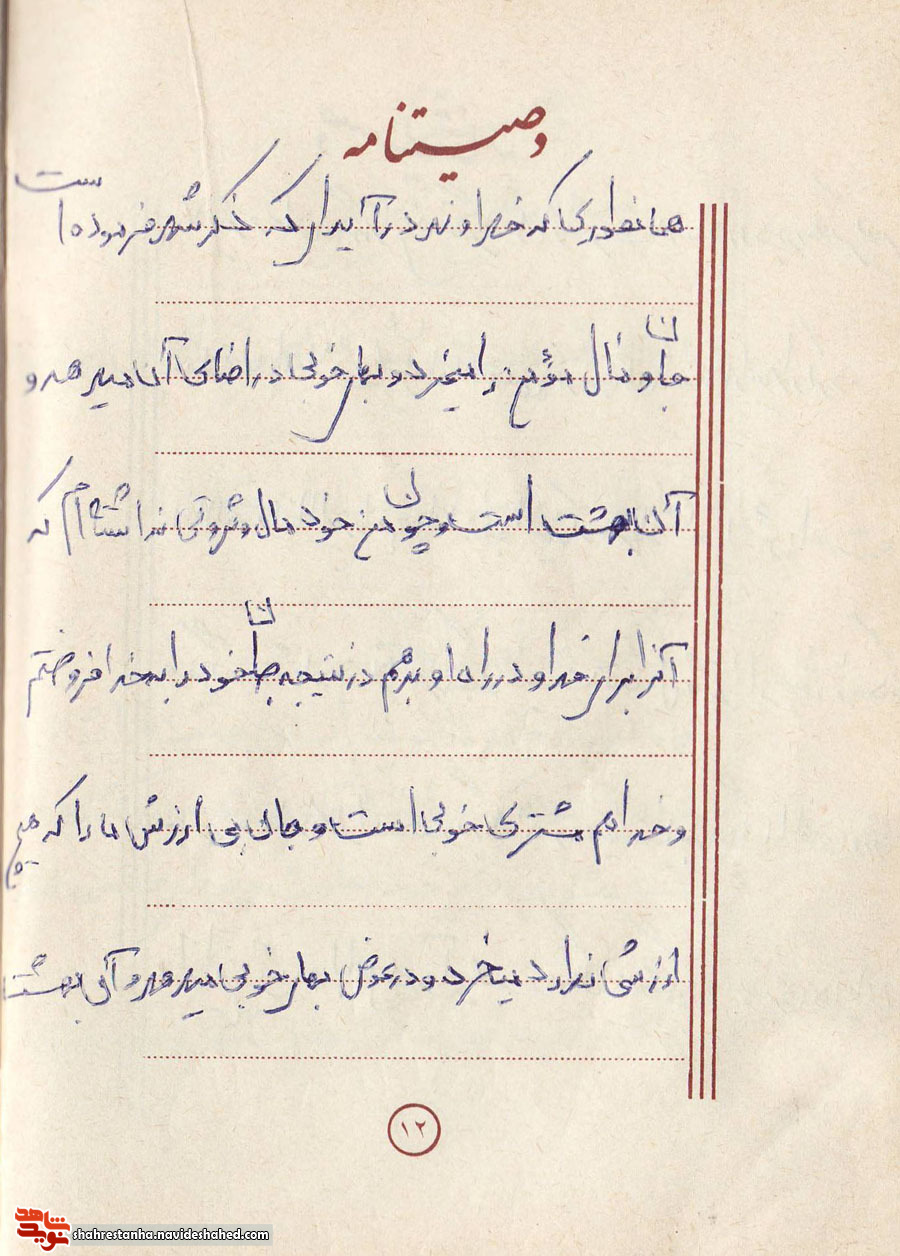 وصیتنامه
همانطوری که خداوند در آیه‌ای که ذکر شد فرموده است
جان و مال مؤمن را میخرد و بهای خوبی در ازای آن میدهد و
آن بهشت است و چون من خود مال و ثروتی نداشته‌ام که
آنرا برای خدا و در راه او بدهم در نتیجه جان خود را به خدا فروختم
و خدا هم مشتری خوبی است و جان بی ارزش ما را که هیچ
ارزشی ندارد میخرد و در عوض بهای خوبی میدهد و آن بهشت
۱۲
نوید شاهد
shahrestanha.navideshahed.com